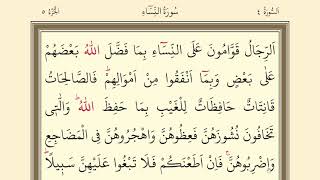 اَلسُّورَةُ ٤ سُورَةُ النِّسَٓاءِ اَلْجُزْءُ ٥
اَلرِّجَالُ قَوَّامُونَ عَلَى النِّسَٓاءِ بِمَا فَضَّلَ اللّٰهُ بَعْضَهُمْ
عَلٰى بَعْضٍ وَبِمَٓا اَنْفَقُوا مِنْ اَمْوَالِهِمْۜ فَالصَّالِحَاتُ
قَانِتَاتٌ حَافِظَاتٌ لِلْغَيْبِ بِمَا حَفِظَ اللّٰهُۜ وَالّٰت۪ى
تَخَافُونَ نُشُوزَهُنَّ فَعِظُوهُنَّ وَاهْجُرُوهُنَّ فِى الْمَضَاجِعِ
وَاضْرِبُوهُنَّۚ فَاِنْ اَطَعْنَكُمْ فَلَا تَبْغُوا عَلَيْهِنَّ سَب۪يلاًۜ